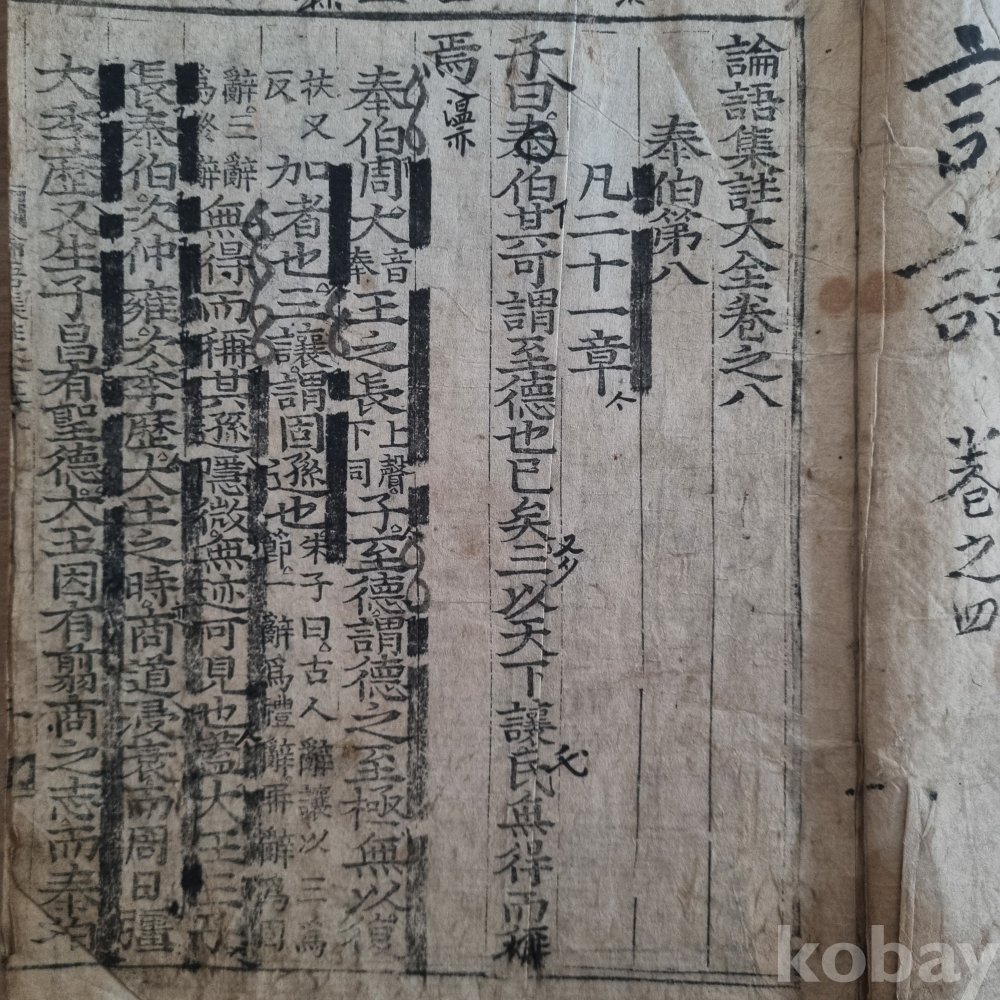 卷之四
論語集註大全卷之八
泰伯第八
凡二十一章
子曰泰伯其可謂至德也已矣三以天下讓民無得而稱
焉
泰伯周大音泰王之長上聲下同子至德謂德之至極無以復
扶又反加者也三讓謂固遜也朱子曰古人辭讓以三爲節一辭爲禮辭再辭爲固
辭三辭爲終辭無得而稱其遜隱微無迹可見也蓋大王三子
長泰伯次仲雍次季歷大王之時商道浸衰而周日彊
大季歷又生子昌有聖德大王因有翦商之志而泰伯
kobay